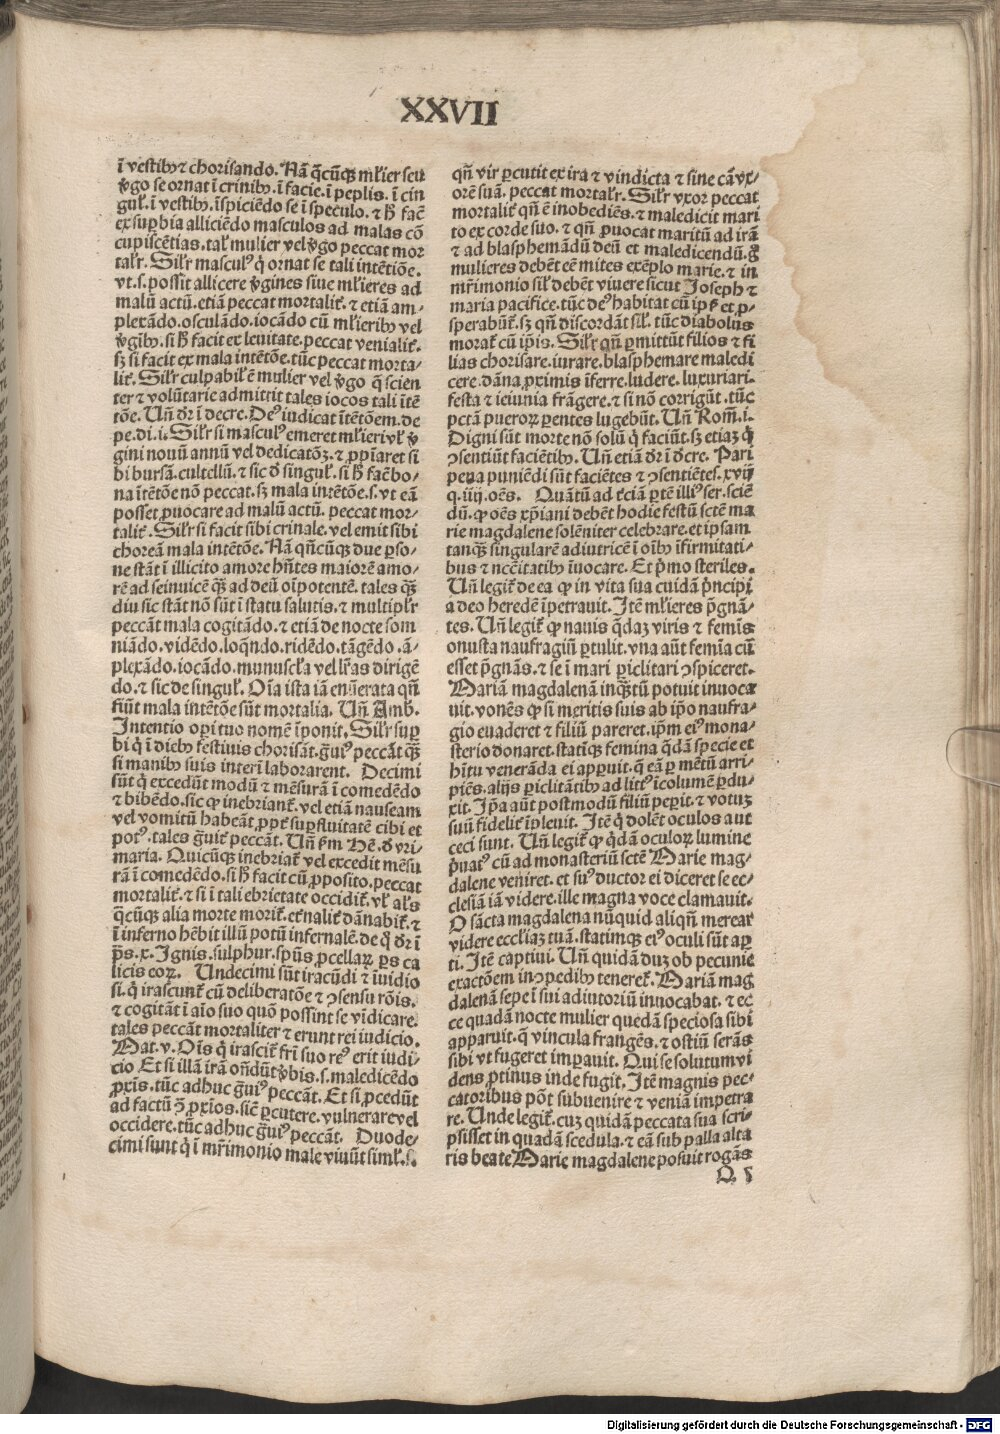 XXVII
ī vestibꝰ ⁊ chorisando. Nā q̄cūqꝫ ml̓ier seu
v̓go se ornat ī crinibꝰ. ī facie. ī peplis. ī cin
gul̓. ī vestibꝰ. īspiciēdo se ī speculo. ⁊ h̓ facē
ex suꝑbia alliciēdo masculos ad malas cō
cupiscētias. tal̓ mulier vel v̓go peccat mor
tal̓r. Sil̓r masculꝰ q̓ ornat se tali intētiōe.
vt. s. possit allicere v̓gines siue ml̓ieres ad
malū actū. etiā peccat mortalit̓. ⁊ etiā am-
plexādo. osculādo. iocādo cū ml̓ieribꝰ vel
v̓gībꝰ. si h̓ facit ex leuitate. peccat venialit̓.
sꝫ si facit ex mala intētōe. tūc peccat morta-
lit̓. Sil̓r culpabil̓ ē mulier vel v̓go q̄ scien
ter ⁊ volūtarie admittit tales iocos tali ītē
tōe. Vn̄ dr̓ ī decre. Deꝰ iudicat ītētōem. de
pe. di. i. Sil̓r si masculꝰ emeret ml̓ieri vl̓ v̓
gini nouū annū vel dedicatōꝫ. ⁊ ꝓpīaret si
bi bursā. cultellū. ⁊ sic d̓ singul̓. si h̓ facē bo-
na ītētōe nō peccat. sꝫ mala intētōe. s. vt eā
posset ꝓuocare ad malū actū. peccat mor-
talit̓. Sil̓r si facit sibi crinale. vel emit sibi
choreā mala intētōe. Nā qn̄cūqꝫ due ꝑso-
ne stāt ī illicito amore hn̄tes maiorē amo-
rē ad seinuicē q̄ꝫ ad deū oīpotentē. tales q̄ꝫ
diu sic stāt nō sūt ī statu salutis. ⁊ multipl̓r
peccāt mala cogitādo. ⁊ etiā de nocte som
niādo. vidēdo. loqn̄do. ridēdo. tāgēdo. ā-
plexādo. iocādo. munuscl̓a vel lr̄as dirigē
do. ⁊ sic de singul̓. Oīa ista iā enūerata qn̄
fiūt mala intētōe sūt mortalia. Vn̄ Amb̓.
Intentio oꝑi tuo nomē īponit. Sil̓r suꝑ
bi q̓ ī diebꝰ festiuis chorisāt. g̓uiꝰ peccāt q̄ꝫ
si manibꝰ suis interī laborarent. Decimi
sūt q̓ excedūt modū ⁊ mēsurā ī comedēdo
⁊ bibēdo. sic ꝙ inebriant̓. vel etiā nauseam
vel vomitū habeāt ꝓpt̓ suꝑfluitatē cibi et
potꝰ. tales g̓uit̓ peccāt. Vn̄ ẜm Hē. d̓ vri-
maria. Quicūqꝫ inebriat̓ vel excedit mēsu
rā ī comedēdo. si h̓ facit cū ꝓposito. peccat
mortalit̓. ⁊ si ī tali ebrietate occidit̓. vl̓ al̓s
q̄cūqꝫ alia morte morit̓. et̓nalit̓ dānabit̓. ⁊
ī inferno hēbit illū potū infernalē. de q̓ dr̓ ī
p̄s. x. Ignis. sulphur. sp̄us ꝓcellaꝝ ꝑs ca
licis eoꝝ. Undecimi sūt iracūdi ⁊ īuidio
si. q̓ irascunt̓ cū deliberatōe ⁊ ꝯsensu rōis.
⁊ cogitāt ī aīo suo quō possint se vīdicare.
tales peccāt mortaliter ⁊ erunt rei iudicio.
Mat. v. Oīs q̓ irascit̓ fr̄i suo reꝰ erit iudi-
cio Et si illā irā on̄dūt v̓bis. s. maledicēdo
ꝓxīs. tūc adhuc g̓uiꝰ peccāt. Et si ꝓcedūt
ad factū ꝯ̄ ꝓxīos. sic̄ ꝑcutere. vulnerare vel
occidere. tūc adhuc g̓uiꝰ peccāt. Duode-
cimi sunt q̓ ī mr̄imonio male viuūt siml̓. s.
qn̄ vir ꝑcutit ex ira ⁊ vindicta ⁊ sine cā vx-
orē suā. peccat mortal̓r. Sil̓r vxor peccat
mortalit̓ qn̄ ē inobediēs. ⁊ maledicit mari
to ex corde suo. ⁊ qn̄ ꝓuocat maritū ad irā
⁊ ad blasphemādū deū et maledicendū. g̓
mulieres debēt eē mites exēplo marie. ⁊ in
mr̄imonio sil̓ debēt viuere sicut Joseph ⁊
maria pacifice. tūc deꝰ habitat cū ip̄s et ꝓ-
sperabūt̓. sꝫ qn̄ discordāt sil̓. tūc diabolus
morat̓ cū ip̄is. Sil̓r qn̄ ꝑmittūt filios ⁊ fi
lias chorisare. iurare. blasphemare maledi
cere. dāna ꝓximis īferre. ludere. luxuriari.
festa ⁊ ieiunia frāgere. ⁊ si nō corrigūt. tūc
pctā pueroꝝ ꝑentes lugebūt. Vn̄ Rom̄. i.
Digni sūt morte nō solū q̓ faciūt. sꝫ etiaꝫ q̓
ꝯsentiūt faciētibꝰ. Vn̄ etiā dr̓ ī d̓cre. Pari
pena puniēdi sūt faciētes ⁊ ꝯsentiētes. xvij
q. iiij. oēs. Quātū ad t̓ciā ꝑtē illiꝰ ser. sciē
dū. ꝙ oēs xp̄iani debēt hodie festū sctē ma
rie magdalene solēniter celebrare. et ipsam
tanq̄ꝫ singularē adiutricē ī oībꝰ īfirmitati-
bus ⁊ nc̄citatibꝰ īuocare. Et p̓mo steriles.
Vn̄ legit̓ de ea ꝙ in vita sua cuidā p̓ncipi
a deo heredē īpetrauit. Itē ml̓ieres p̓gnā-
tes. Vn̄ legit̓ ꝙ nauis q̄daꝫ viris ⁊ femīs
onusta naufragiū ꝑtulit. vna aūt femīa cū
esset p̓gnās. ⁊ se ī mari ꝑiclitari ꝯspiceret.
Mariā magdalenā inq̄ꝫtū potuit inuoca
uit. vonēs ꝙ si meritis suis ab ip̄o naufra-
gio euaderet ⁊ filiū pareret. ip̄m eiꝰ mona-
sterio donaret. statīqꝫ femina q̄dā specie et
hītu venerāda ei apꝑuit. q̄ eā ꝑ mētū arri-
piēs. alijs ꝑiclitātibꝰ ad litꝰ īcolumē ꝑdu-
xit. Ip̄a aūt postmodū filiū peꝑit. ⁊ votuꝫ
suū fidelit̓ īpleuit. Itē q̓ dolēt oculos aut
ceci sunt. Vn̄ legit̓ ꝙ q̓dā oculoꝝ lumine
p̓uatꝰ cū ad monasteriū sctē Marie mag-
dalene veniret. et suꝰ ductor ei diceret se ec-
clesiā iā videre. ille magna voce clamauit.
O sācta magdalena nūquid aliqn̄ merear
videre eccl̓iaꝫ tuā. statimqꝫ eiꝰ oculi sūt aꝑ
ti. Itē captiui. Vn̄ quidā duꝫ ob pecunie
exactōem in ꝯpedibꝰ teneret̓. Mariā mag
dalenā sepe ī sui adiutoriū inuocabat. ⁊ ec
ce quadā nocte mulier quedā speciosa sibi
apparuit. q̄ vincula frangēs. ⁊ ostiū serās
sibi vt fugeret imꝑauit. Qui se solutum vi
dens ꝓtinus inde fugit. Itē magnis pec-
catoribus pōt subuenire ⁊ veniā impetra
re. Unde legit̓. cuꝫ quidā peccata sua scri-
psisset in quadā scedula. ⁊ eā sub palla alta
ris beate Marie magdalene posuit rogās
Q 5
Digitalisierung gefördert durch die Deutsche Forschungsgemeinschaft - DFG